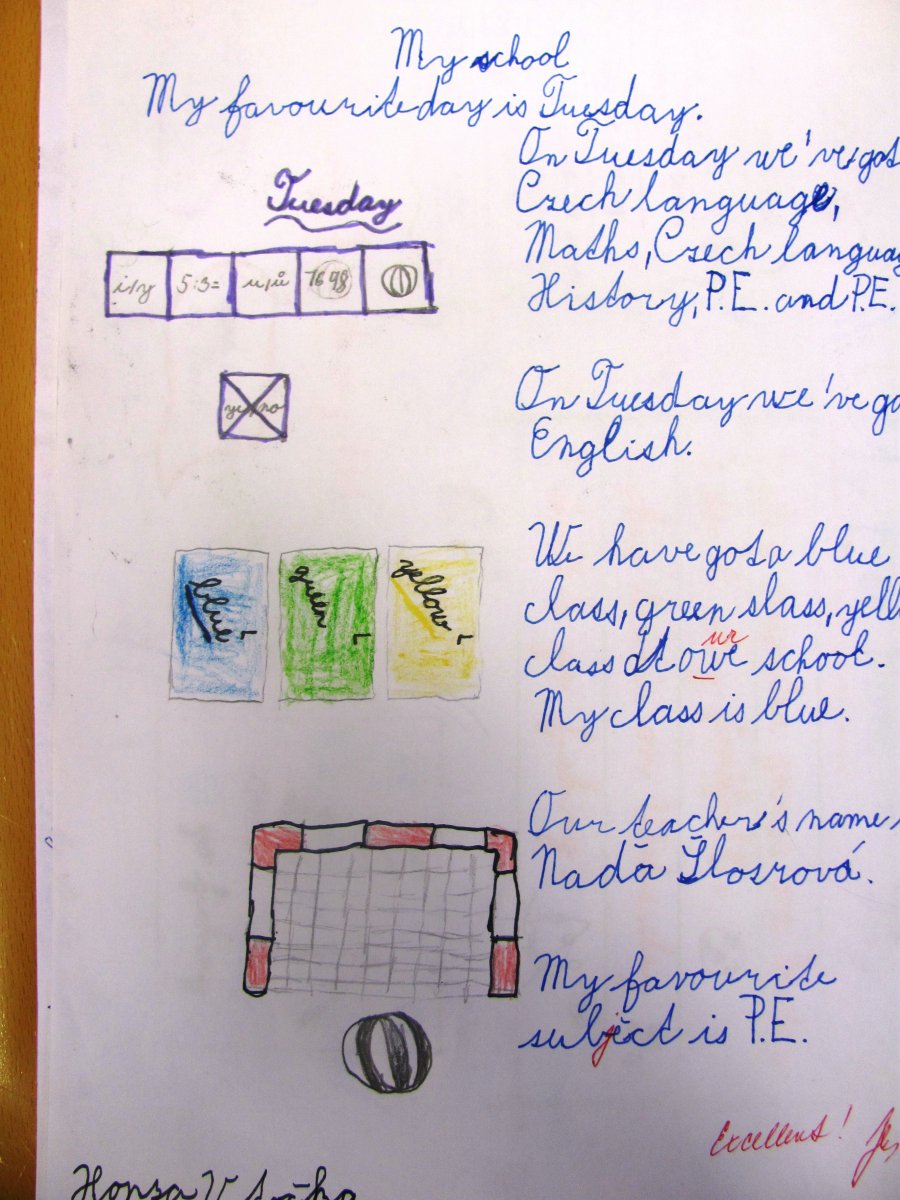 My school
My favourite day is Tuesday.
On Tuesday we've got
Czech language,
Maths, Czech langua
History, P.E. and P.E.
Tuesday
i/y 5:3= u/ů 1698
On Tuesday we've go
English.
We have got a blue
class, green slass, yell
class at owe school.
ur
My class is blue.
blue green yellow
Our teacher's name
Naďa Šlosrová.
My favourite
subject is P.E.
j
Excellent!
Honza